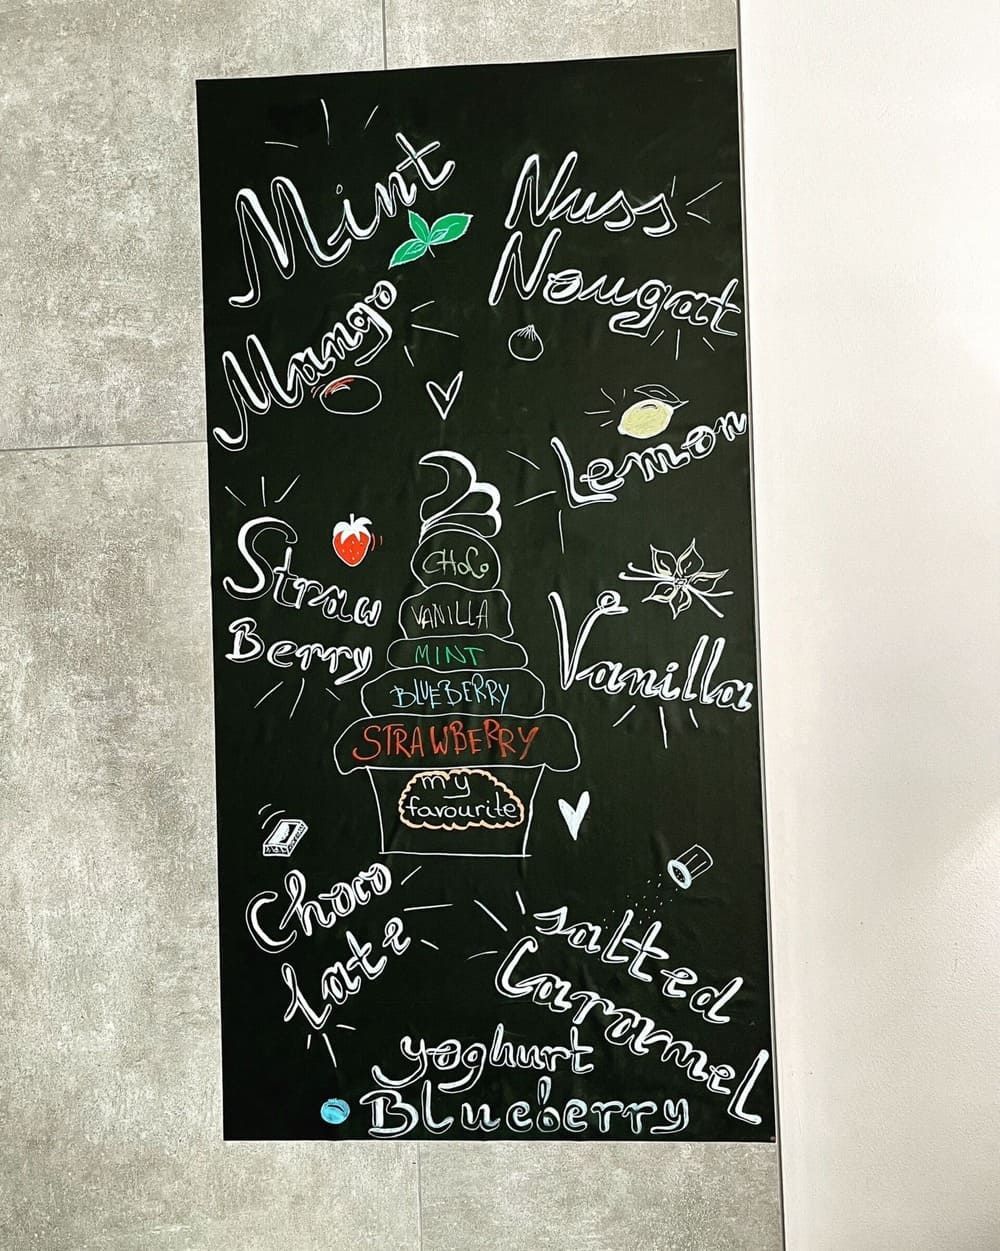 Mint
Nuss
Nougat
Mango
Lemon
Straw
Berry
Vanilla
CHOCO
VANILLA
MINT
BLUEBERRY
STRAWBERRY
my
favourite
Choco
late
Salted
Caramel
yoghurt
Blueberry